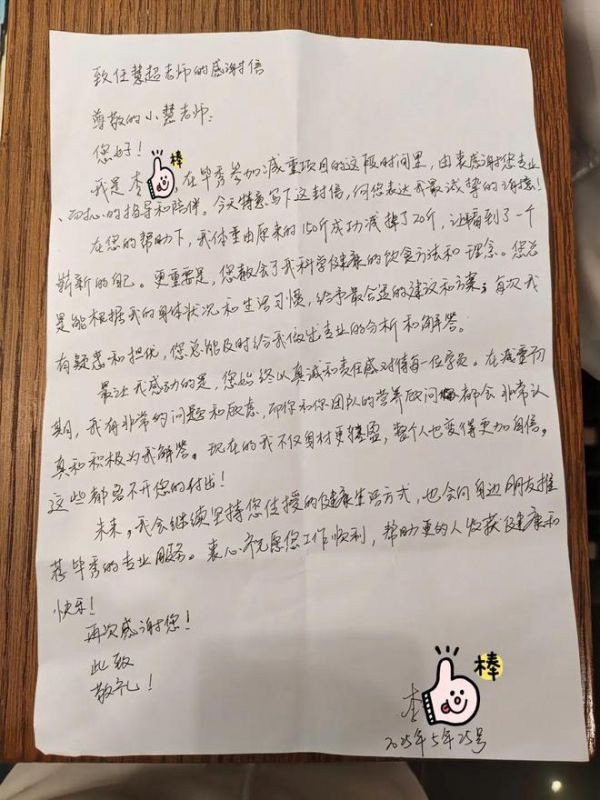 致任慧超老师的感谢信
尊敬的小慧老师:
您好!
我是李 棒 在毕秀参加减重项目的这段时间里,由衷感谢您专业
而耐心的指导和陪伴。今天特意写下这封信,向您表达我最诚挚的谢意!
在您的帮助下,我体重由原来的150斤成功减掉了20斤,让瞄到了一个
崭新的自己。更重要是,您教会了我科学健康的饮食方法和理念。您总
是能根据我的身体状况和生活习惯,给予最合适的建议和方案;每次我
有疑惑和担忧,您总能及时给我做出专业的分析和解答。
最让我感动的是,您始终以真诚和责任感对待每一位学员。在减重初
期,我有非常的问题和顾虑,而你和您团队的营养顾问都会非常认
真和积极为我解答。现在的我不仅身材更轻盈,整个人也变得更加自信。
这些都离不开您的付出!
未来,我会继续坚持您传授的健康生活方式,也会向身边朋友推
荐毕秀的专业服务。衷心祝愿您工作顺利,帮助更的人收获健康和
快乐!
再次感谢您!
此致
敬礼!
李 棒
2025年5年25号